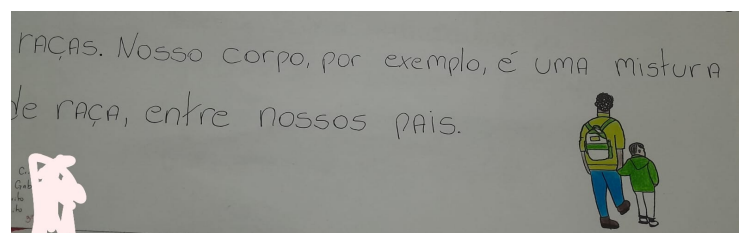 raças. Nosso corpo, por exemplo, é uma mistura
de raça, entre nossos pais.